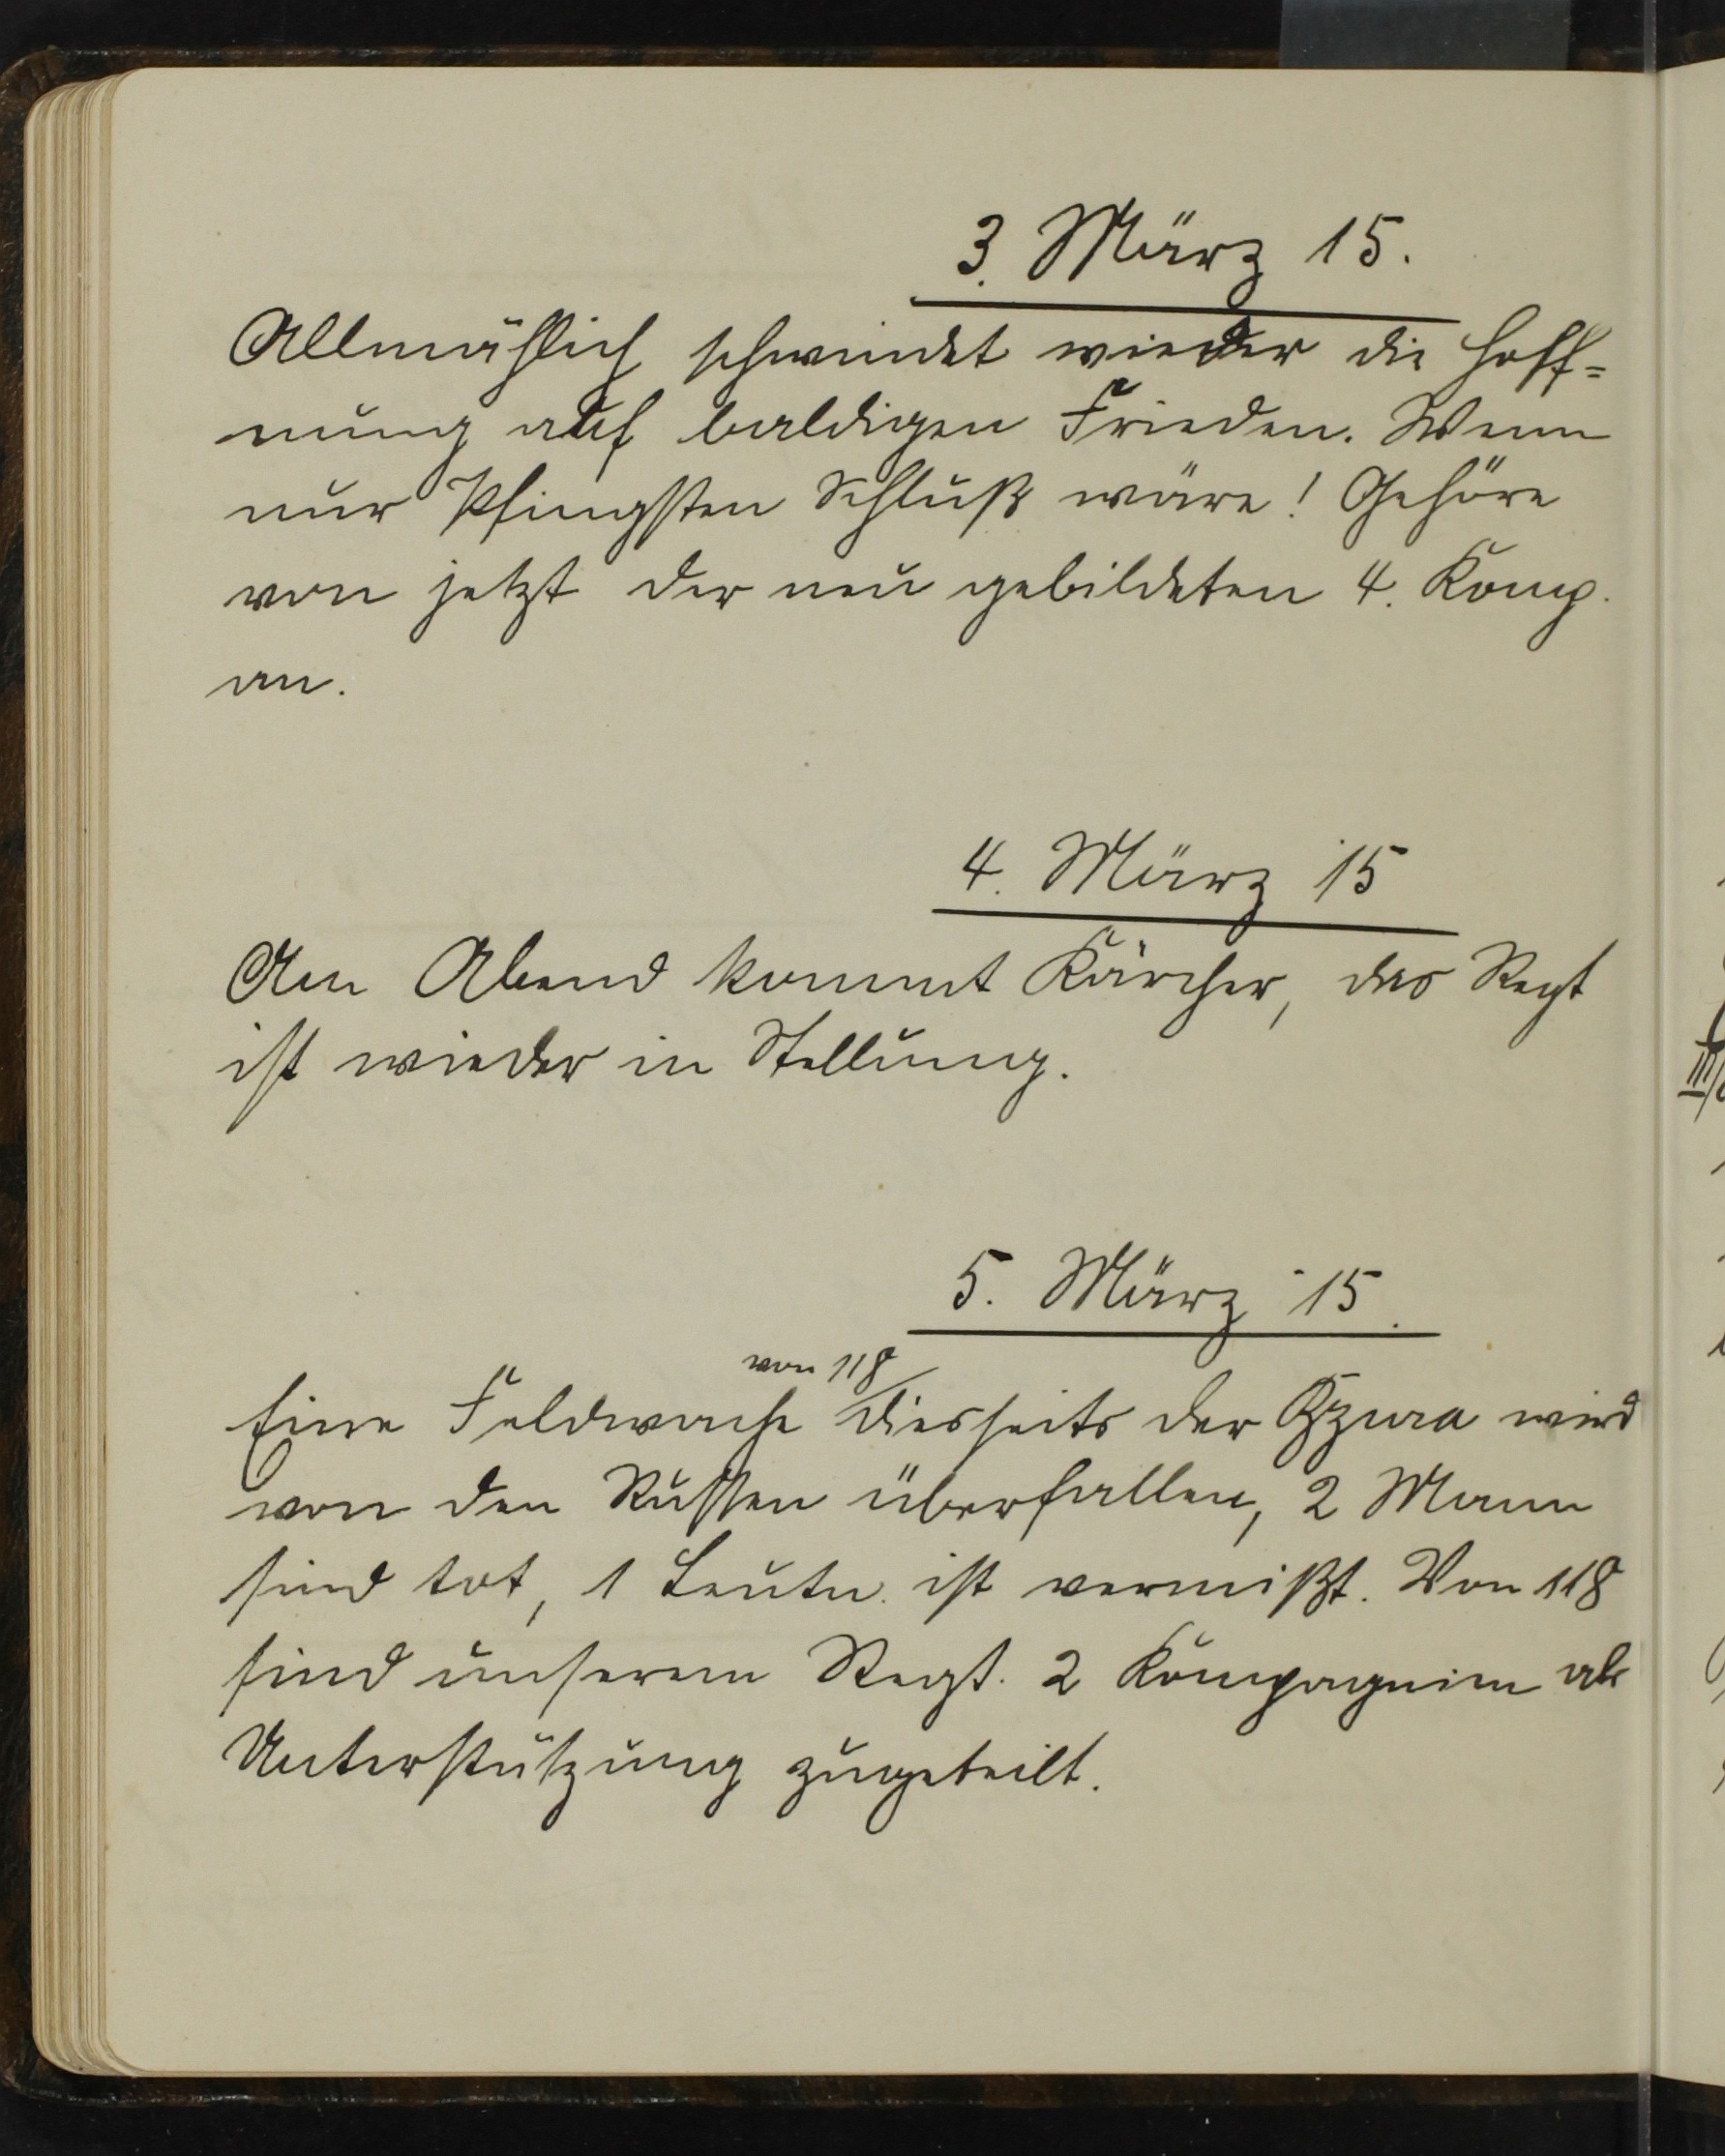 3. März 15.
Allmählich schwindet wieder die Hoff=
nung auf baldigen Frieden. Wenn
nur Pfingsten Schluß wäre! Gehöre
von jetzt der neu gebildeten 4. Komp.
an.
4. März 15
Am Abend kommt Kärcher, das Regt
ist wieder in Stellung.
5. März 15.
von 118
Eine Feldwache diesseits der Bzura wird
von den Russen überfallen, 2 Mann
sind tot, 1 Leutn. ist vermißt. Von 118
sind unserem Regt. 2 Kompagnien als
Unterstützung zugeteilt.